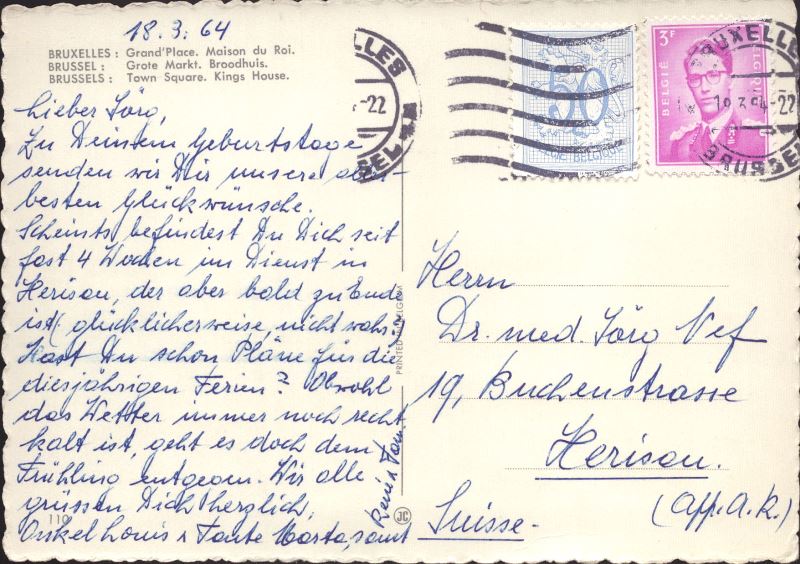 18.3.64
BRUXELLES : Grand'Place. Maison du Roi.
BRUSSEL : Grote Markt. Broodhuis.
BRUSSELS : Town Square. Kings House.
Lieber Jörg,
Zu Deinem Geburtstage
senden wir Dir unsere aller-
besten Glückwünsche.
Scheints befindest Du Dich seit
fast 4 Wochen im Dienst in
Herisau, der aber bald zu Ende
ist (glücklicherweise, nicht wahr?)
Hast Du schon Pläne für die
diesjährigen Ferien? Obwohl
das Wetter immer noch recht
kalt ist, geht es doch dem
Frühling entgegen. Wir alle
grüssen Dich herzlich,
Onkel Louis & Tante Marta, samt
110
PRINTED IN BELGIUM
JC
BRUXELLES
-22
BRUSSEL
50
BELGIE-BELGIQUE
3F
BELGIË
BELGIQUE
BRUXELLES
18.3.64-22
BRUSSEL
Herrn
Dr. med. Jörg Nef
19, Buchenstrasse
Herisau.
(App. A. R.)
Suisse.